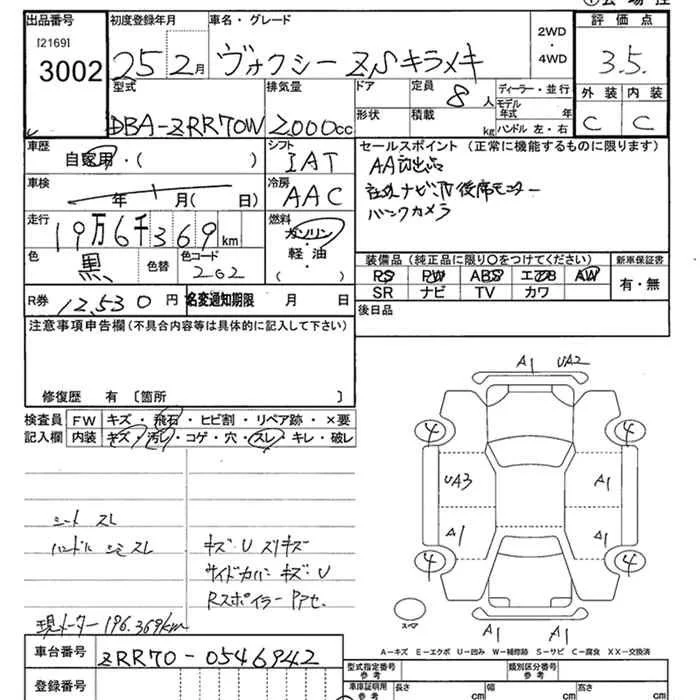 出品番号
[2169]
3002
初度登録年月
25 2月
車名・グレード
ヴォクシー ZSキラメキ
2WD
・
4WD
評価点
3.5.
外装 内装
C C
型式
DBA-ZRR70W
排気量
2,000cc
ドア
定員
8人
ディーラー・並行
形状
積載
kg
モデル年式 年
ハンドル 左・右
車歴
自家用・( )
シフト
IAT
車検
年 1 月( 日)
冷房
AAC
走行
19万6千369km
燃料
ガソリン
軽油
( )
色
黒
色替
色コード
202
R券
12,530円
名変通知期限 月 日
セールスポイント (正常に機能するものに限ります)
AA初出品
社外ナビTV後席モニター
バックカメラ
装備品(純正品に限り○をつけてください)
PS PW ABS エアB AW
SR ナビ TV カワ
新車保証書
有・無
後日品
注意事項申告欄(不具合内容等は具体的に記入して下さい)
修復歴 有〔箇所 〕
検査員
記入欄
FW キズ・飛石・ヒビ割・リペア跡・×要
内装 キズ・汚レ・コゲ・穴・スレ・キレ・破レ
シート スレ
ハンドル シミ スレ
キズ・U スリキズ
サイドカバー キズ U
Rスポイラー Pアセ.
現メーター 196.369km
車台番号
ZRR70-0546942
登録番号
A1 UA2
4 4
UA3 A1
A1 A1
4 4
スペア
A1 A1
A-キズ E-エクボ U-凹み W-補修跡 S-サビ C-腐食 XX-交換済
型式指定番号
参考
類別区分番号
参考
車庫証明用
参考
長さ cm
幅 cm
高さ cm